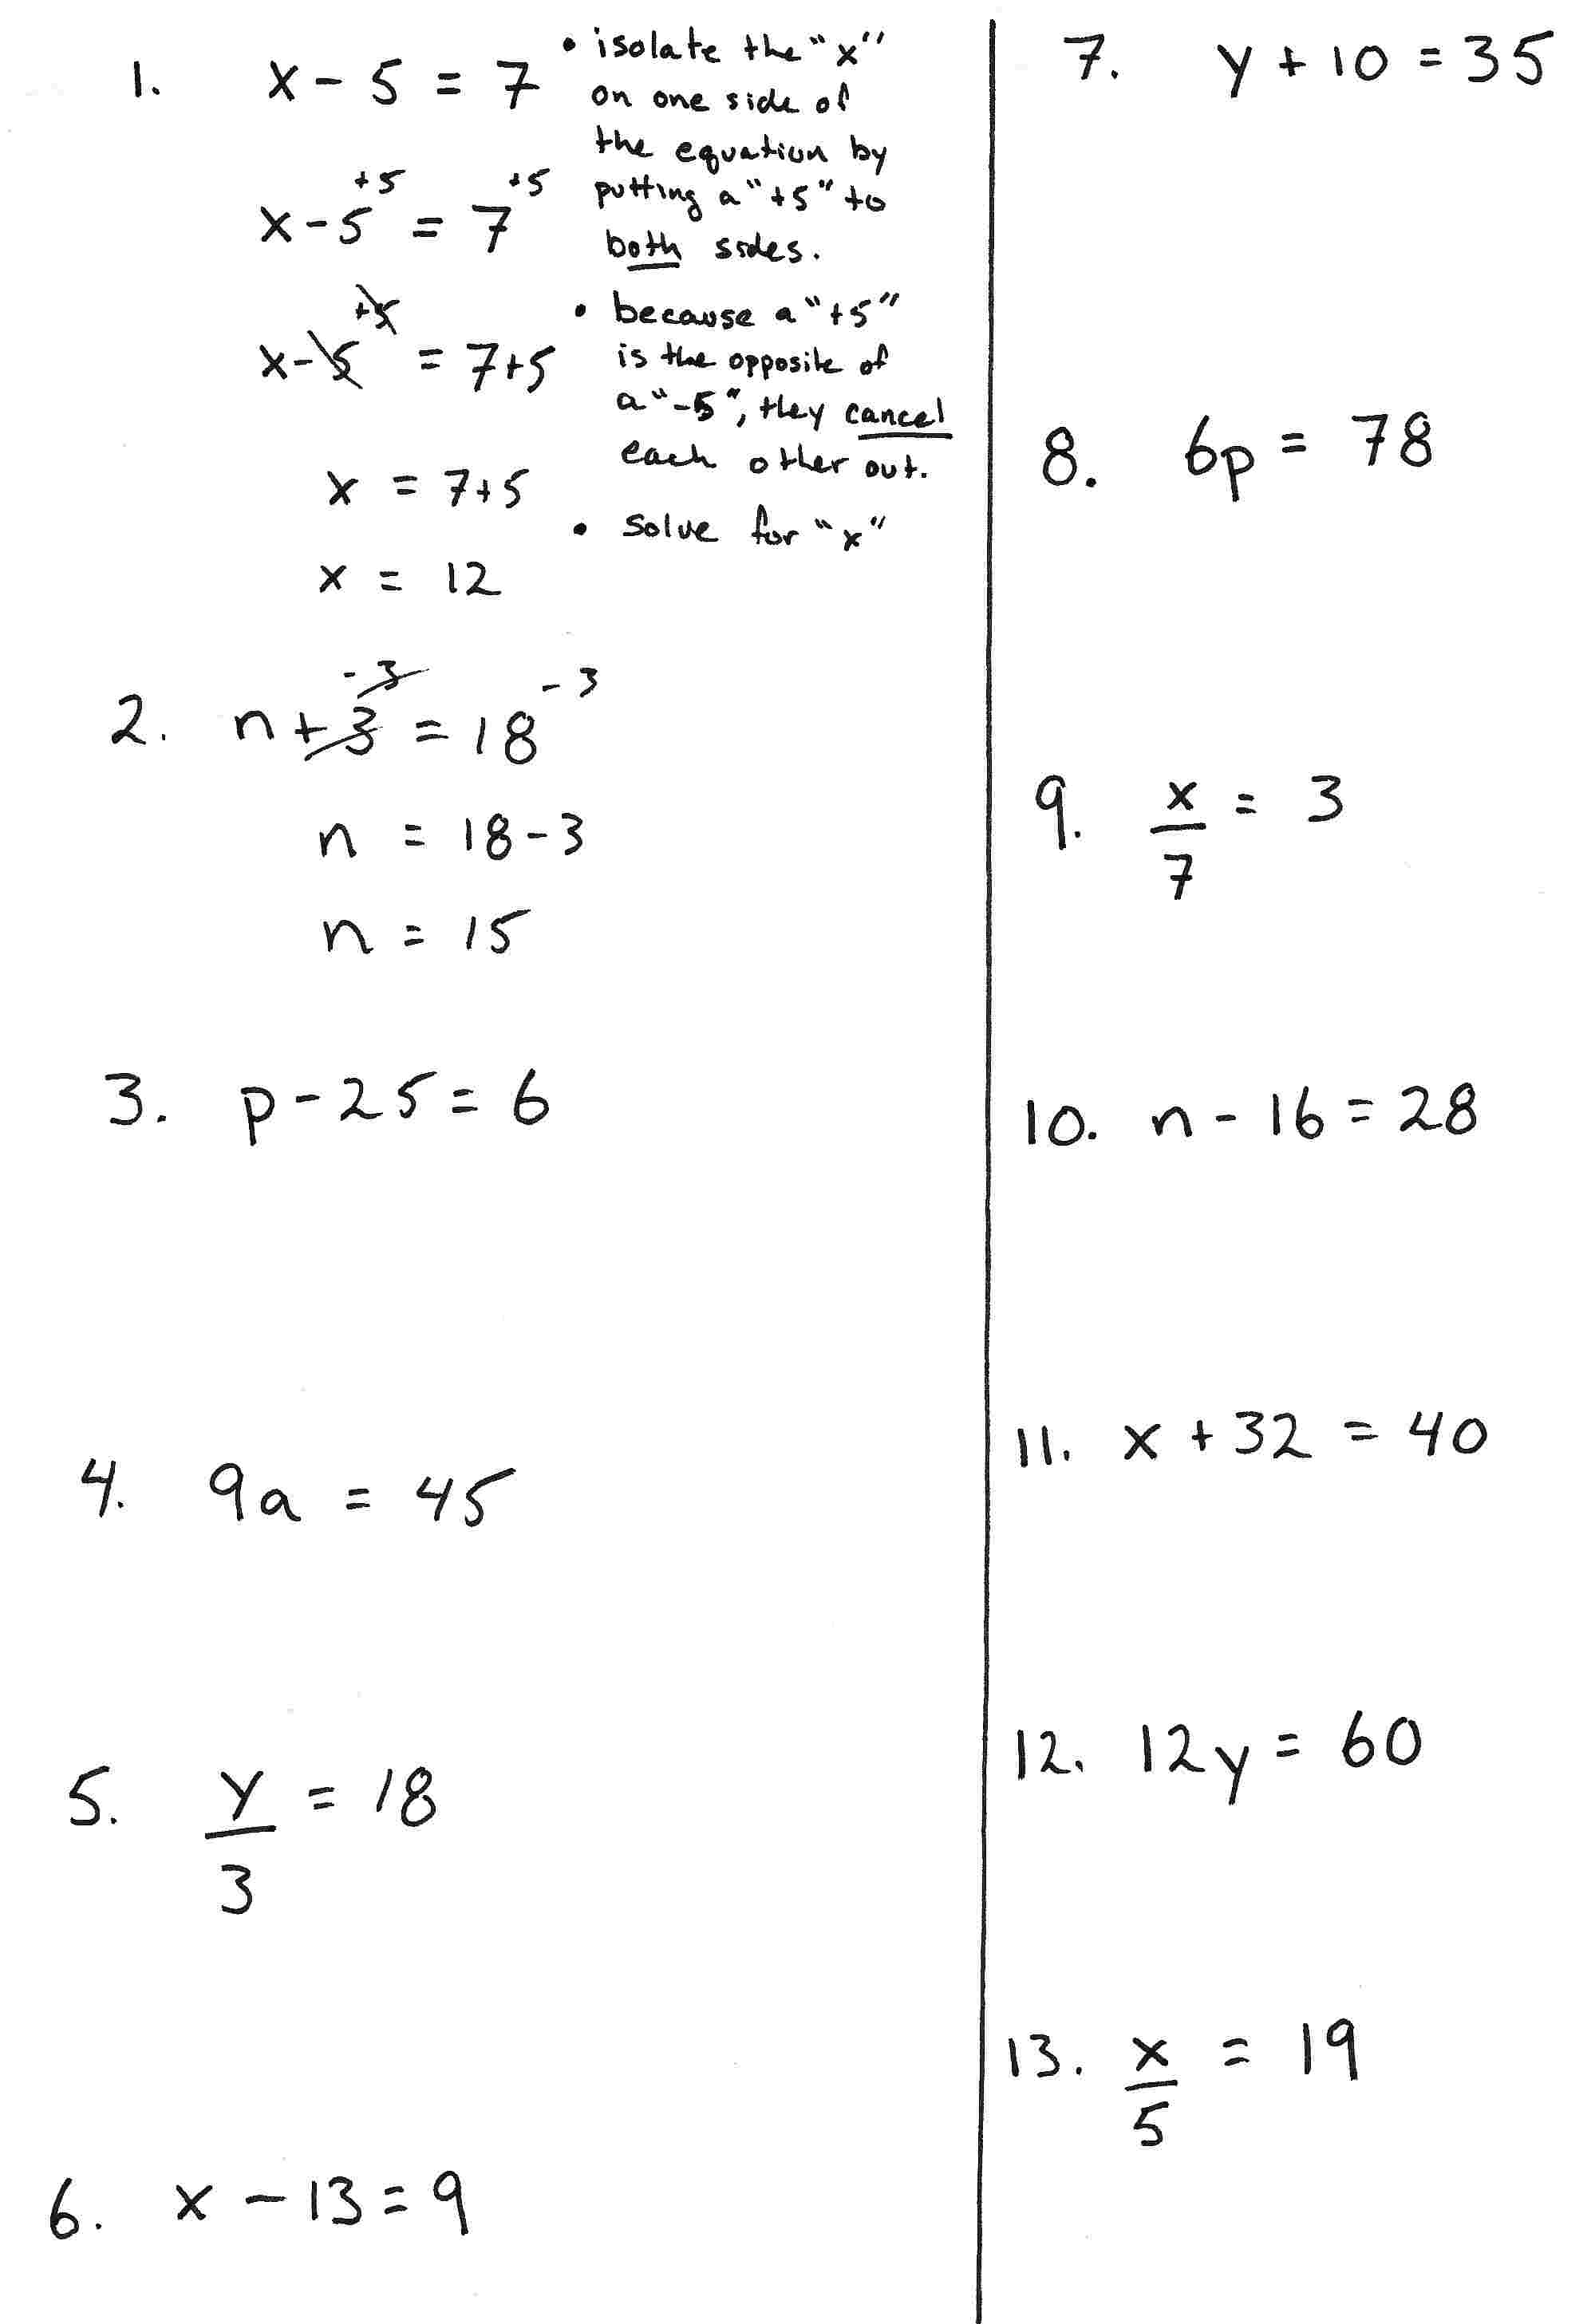 1. x - 5 = 7
x - 5 +5 = 7 +5
x - 5 +5 = 7+5
x = 7+5
x = 12
• isolate the "x"
on one side of
the equation by
putting a "+5" to
both sides.
• because a "+5"
is the opposite of
a "-5", they cancel
each other out.
• solve for "x"
2. n + 3 -3 = 18 -3
n = 18 - 3
n = 15
3. p - 25 = 6
4. 9a = 45
5. y/3 = 18
6. x - 13 = 9
7. y + 10 = 35
8. 6p = 78
9. x/7 = 3
10. n - 16 = 28
11. x + 32 = 40
12. 12y = 60
13. x/5 = 19